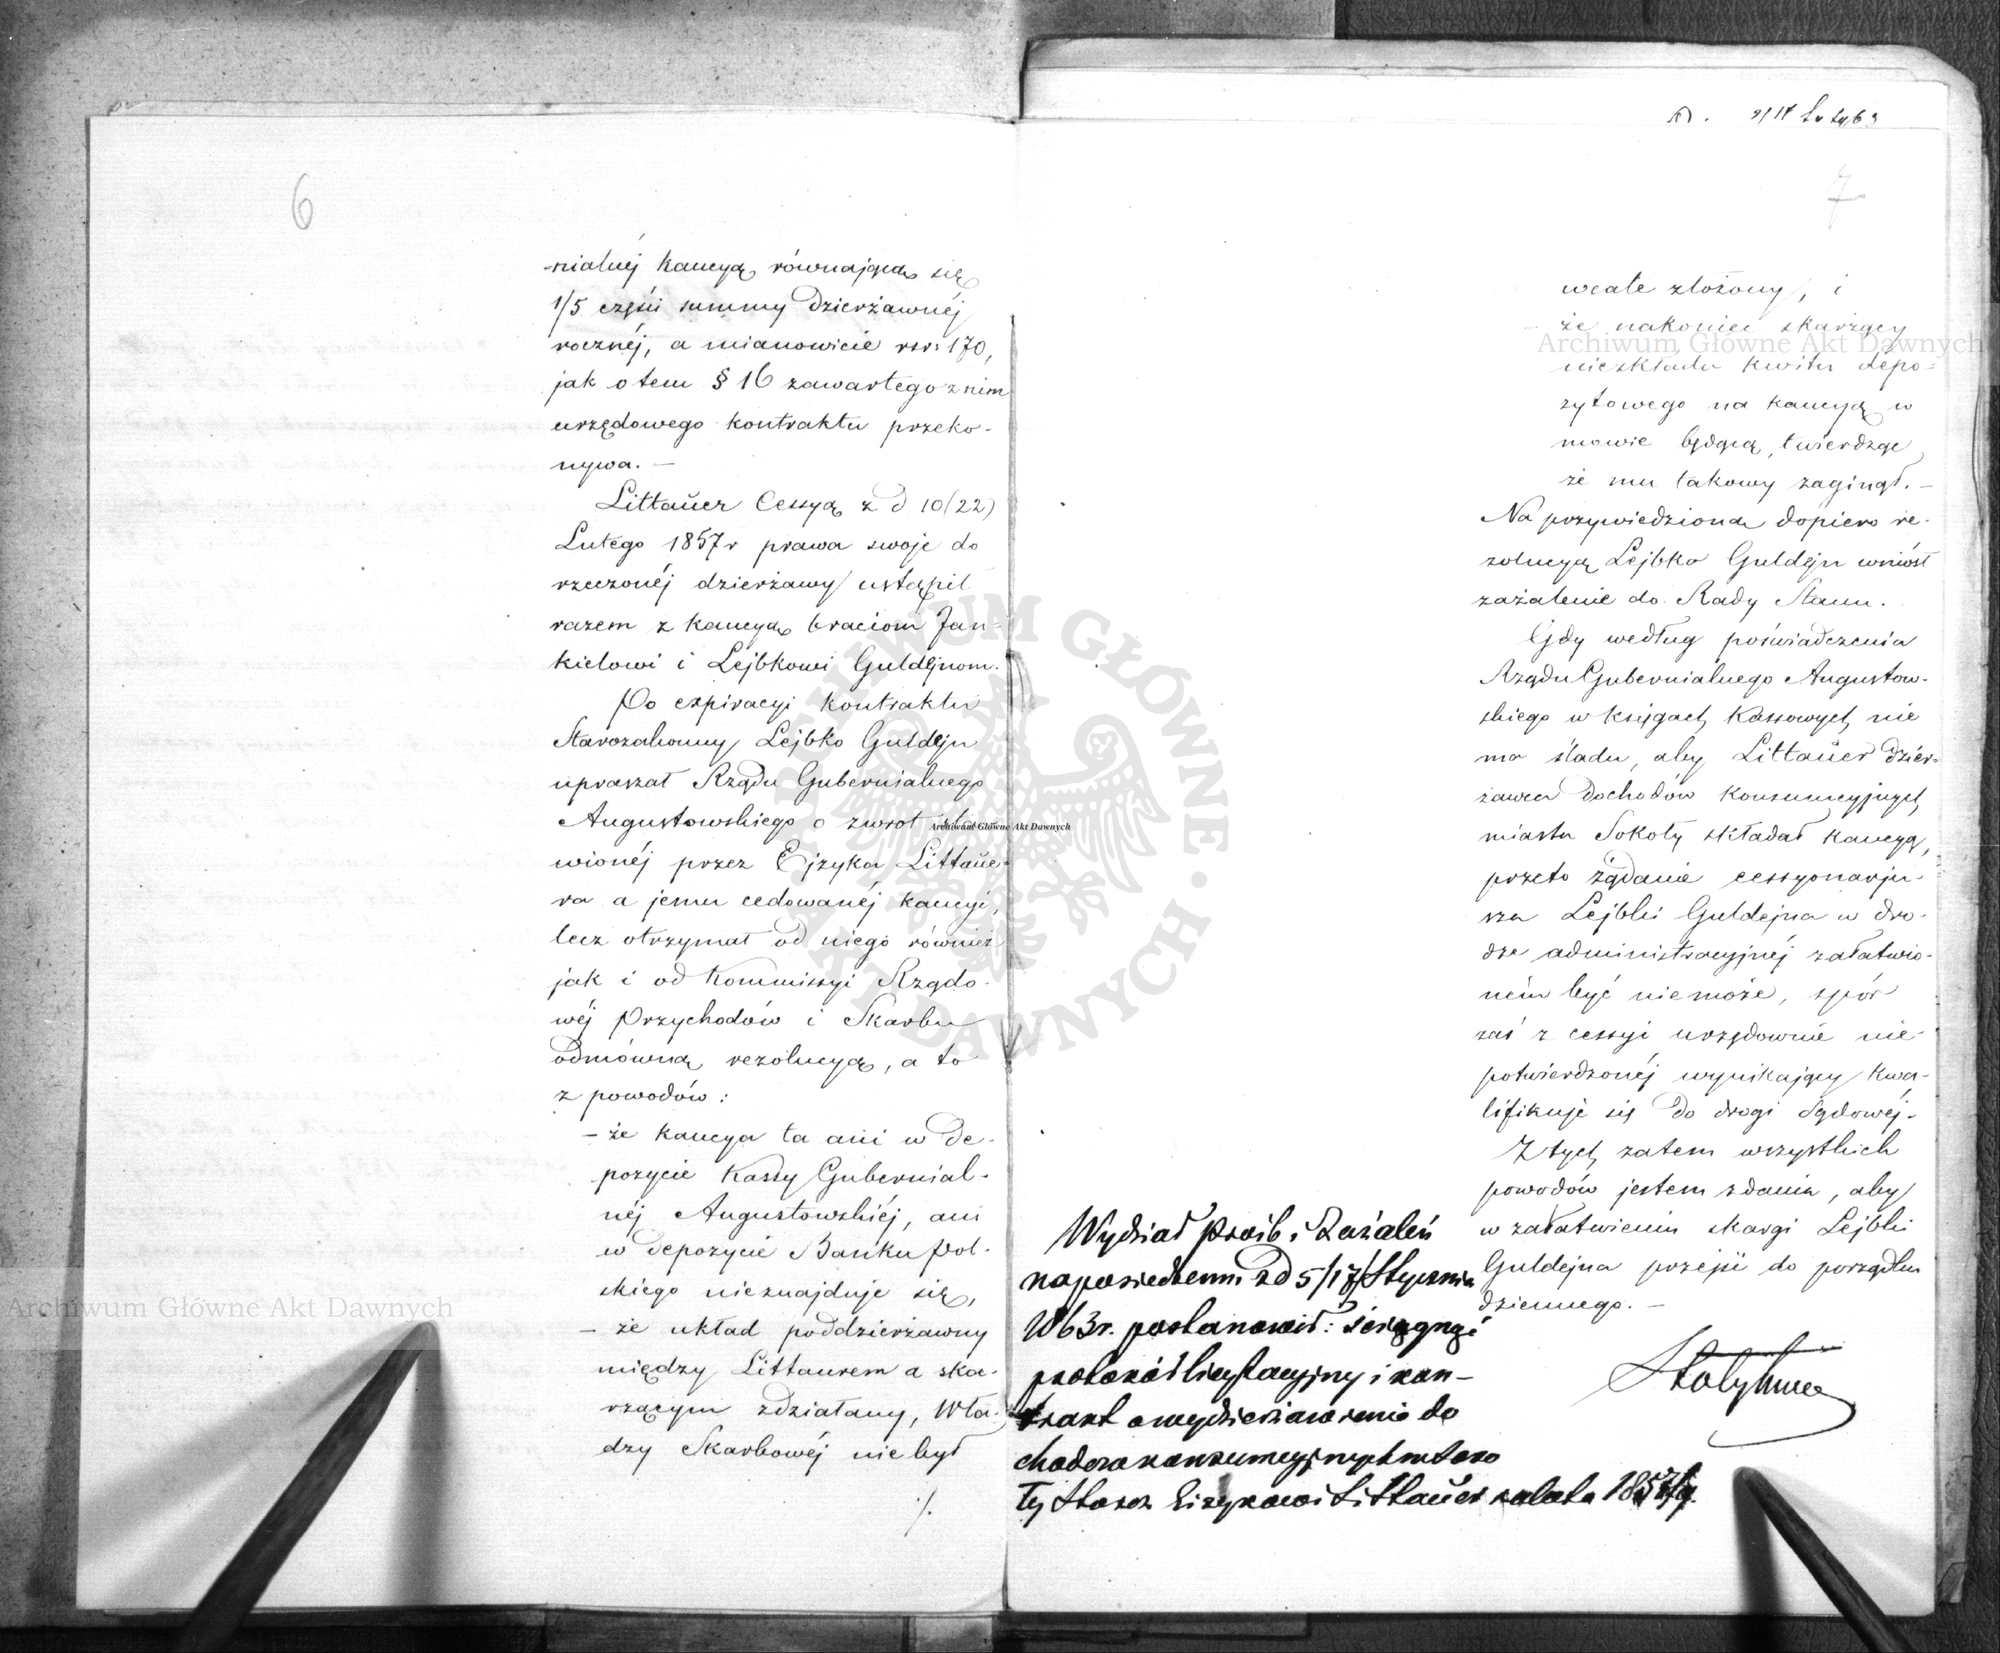 6
nialnéj kaucyą równającą się
1/5 części summy dzierżawnéj
rocznéj, a mianowicie rsr: 170,
jak o tem § 16 zawartego z nim
urzędowego kontraktu przeko-
nywa. —
Littaüer Cessyą z d 10/22)
Lutego 1857 r prawa swoje do
rzeczonéj dzierżawy ustąpił
razem z kaucyą braciom Jan-
kielowi i Lejbkowi Guldejnom.
Po expiracyi kontraktu
Starozakonny Lejbko Guldejn
upraszał Rządu Gubernialnego
Augustowskiego o zwrot sta-
wionéj przez Ejzyka Littaüe-
ra a jemu cedowanéj kaucyi,
lecz otrzymał od niego również
jak i od Kommissyi Rządo-
wéj Przychodów i Skarbu
odmówną rezolucyą, a to
z powodów:
– że kaucya ta ani w de-
pozycie Kassy Gubernial-
néj Augustowskiéj, ani
w depozycie Banku Pol-
skiego nieznajduje się,
– że układ poddzierżawny
między Littaurem a ska-
rżącym zdziałany, Wła-
dzy Skarbowéj nie był
./.
7
wcale złożony, i
– że nakoniec skarżący
nieskłada kwitu depo-
zytowego na kaucyą w
mowie będącą, twierdząc
że mu takowy zaginął. —
Na przywiedzioną dopiero re-
zolucyą Lejbko Guldejn wniósł
zażalenie do Rady Stanu.
Gdy według poświadczenia
Rządu Gubernialnego Augustow-
skiego w księgach Kassowych nie
ma śladu, aby Littaüer dzier-
żawca dochodów konsumcyjnych
miasta Sokoły składał kaucyą,
przeto żądanie cessyonarju-
sza Lejbki Guldejna w dro-
dze administracyjnéj załatwio-
ném być nie może, spór
zaś z cessyi urzędownie nie-
potwierdzonéj wynikający kwa-
lifikuje się do drogi Sądowéj.
Z tych zatem wszystkich
powodów jestem zdania, aby
w załatwieniu skargi Lejbki
Guldejna przejść do porządku
dziennego. —
Wydział Próśb i Zażaleń
na posiedzeniu z d 5/17 Stycznia
1863 r. postanowił: ściągnąć
protokół licytacyjny i kon-
trakt o wydzierżawienie do
chodów konsumcyjnych m. Soko
ły Staroz. Eizykowi Littaüer na lata 1857/9.
Archiwum Główne Akt Dawnych
Archiwum Główne Akt Dawnych
Archiwum Główne Akt Dawnych
ARCHIWUM GŁÓWNE · AKT DAWNYCH ·